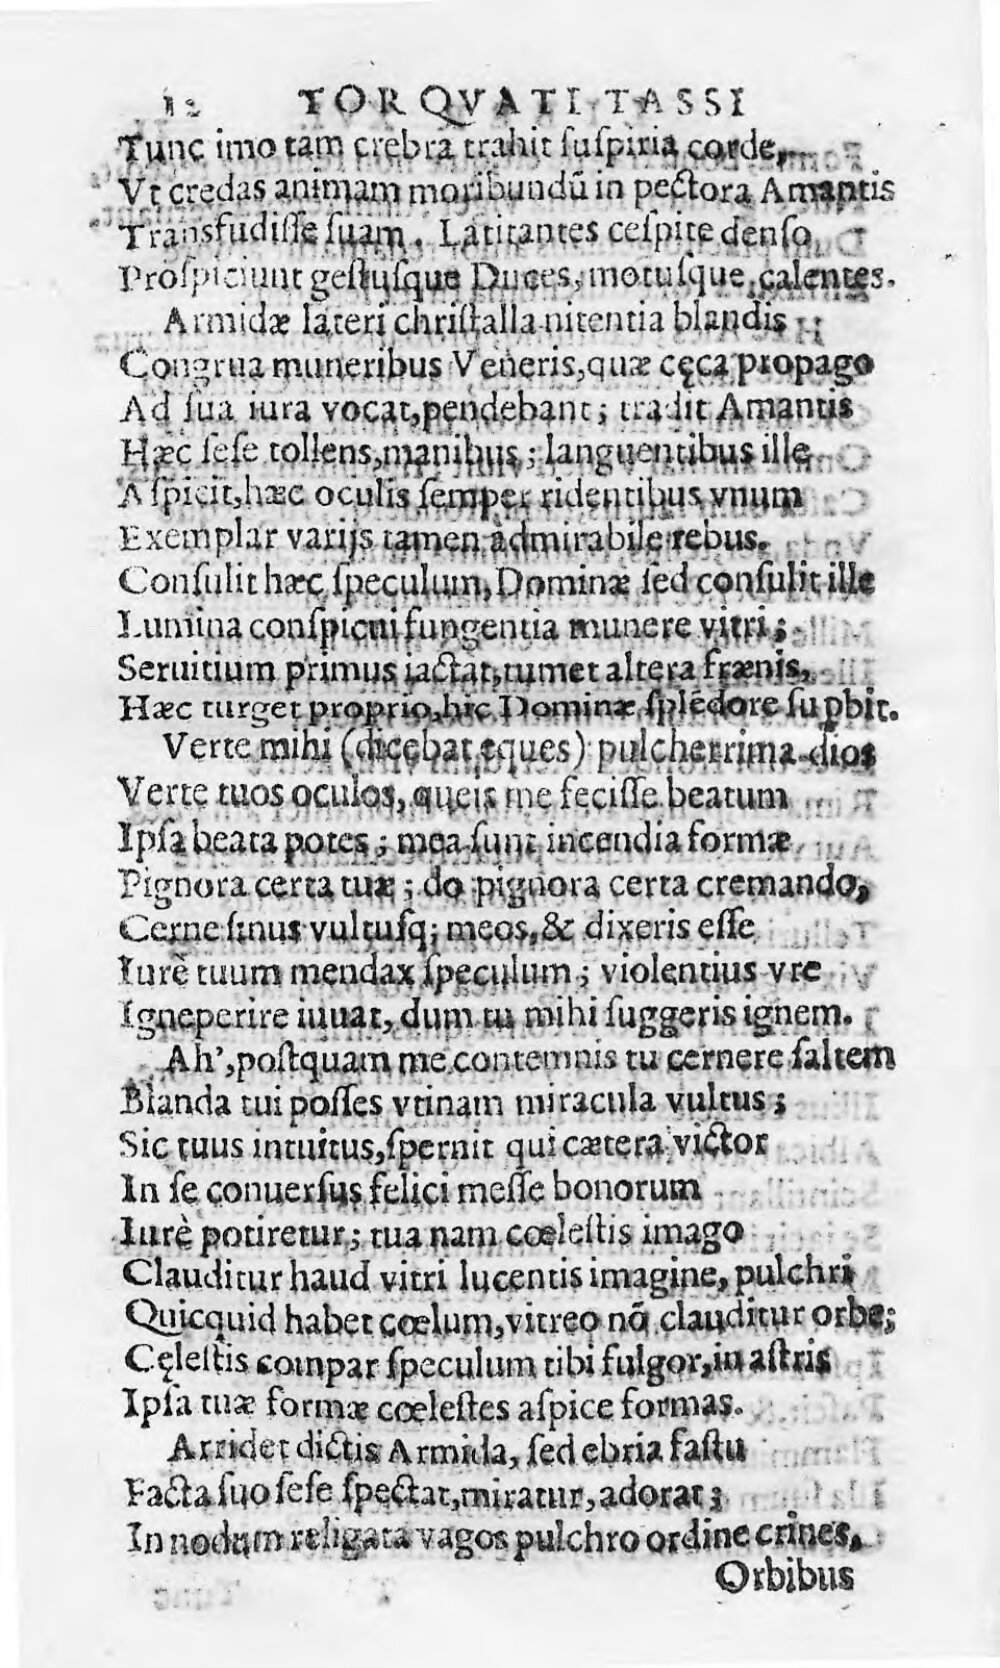 12 TORQVATI TASSI
Tunc imo tàm crebra trahit ſuſpiria corde,
Vt credas animam moribundũ in pectora Amantis
Transfudiſſe ſuam. Latitantes ceſpite denſo
Proſpiciunt geſtuſque Duces, motuſque calentes.
Armidæ lateri chriſtalla nitentia blandis
Congrua muneribus Veneris, quæ cęca propago
Ad ſua iura vocat, pendebant; tradit Amantis
Hæc ſeſe tollens, manibus; languentibus ille
Aſpicit, hæc oculis ſemper ridentibus vnum
Exemplar varijs tamen admirabile rebus.
Conſulit hæc ſpeculum, Dominæ ſed conſulit ille
Lumina conſpicui fungentia munere vitri;
Seruitium primus iactat, tumet altera frænis,
Hæc turget proprio, hic Dominæ ſplẽdore ſupbit.
Verte mihi (dicebat eques) pulcherrima dios
Verte tuos oculos, queis me feciſſe beatum
Ipſa beata potes; mea ſunt incendia formæ
Pignora certa tuæ; do pignora certa cremando,
Cerne ſinus vultuſq; meos, & dixeris eſſe
Iurè tuum mendax ſpeculum; violentius vre
Igneperire iuuat, dum tu mihi ſuggeris ignem.
Ah', poſtquam me contemnis tu cernere ſaltem
Blanda tui poſſes vtinam miracula vultus;
Sic tuus intuitus, ſpernit qui cætera victor
In ſe conuerſus felici meſſe bonorum
Iurè potiretur; tua nam cœleſtis imago
Clauditur haud vitri lucentis imagine, pulchri
Quicquid habet cœlum, vitreo nõ clauditur orbe;
Cęleſtis compar ſpeculum tibi fulgor, in aſtris
Ipſa tuæ formæ cœleſtes aſpice formas.
Arridet dictis Armida, ſed ebria faſtu
Facta ſuo ſeſe ſpectat, miratur, adorat;
In nodum religata vagos pulchro ordine crines,
Orbibus